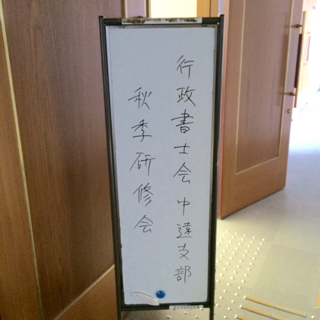 行政書士会中遠支部
秋季研修会